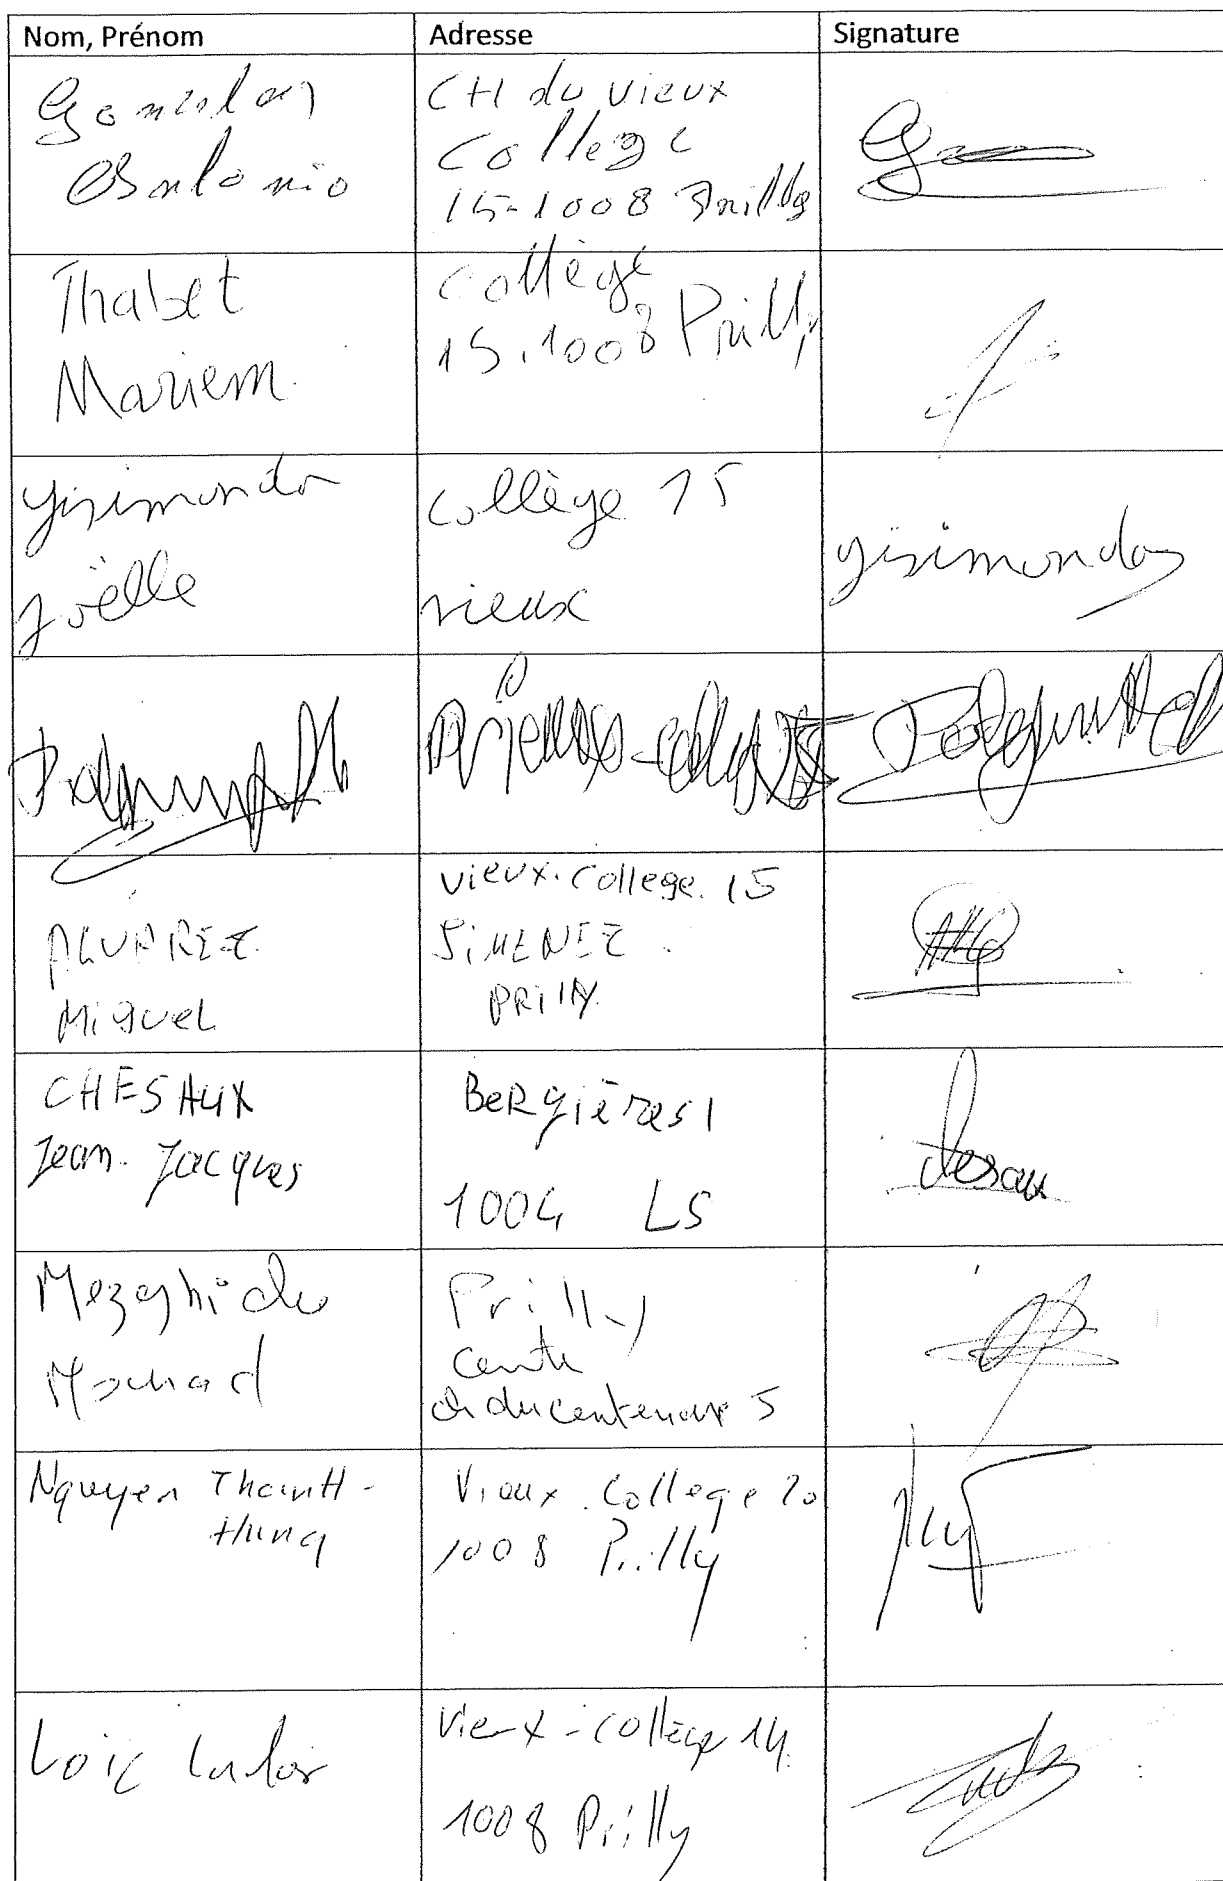 Nom, Prénom
Adresse
Signature
Gonzalez
Antonio
CH du vieux
College
15-1008 Prilly
Thabet
Mariem
Collège
15.1008 Prilly
Gisimonda
Joëlle
Collège 15
vieux
Gisimonda
ALVAREZ
Miguel
Vieux. College. 15
JiMENEZ
PRilly
CHESAUX
Jean-Jacques
BeRgières 1
1004 LS
Mourad
Prilly
Centre
5
Nguyen Thanh-
Hung
Vieux. College 20
1008 Prilly
Loïc
Vieux-collège 14
1008 Prilly